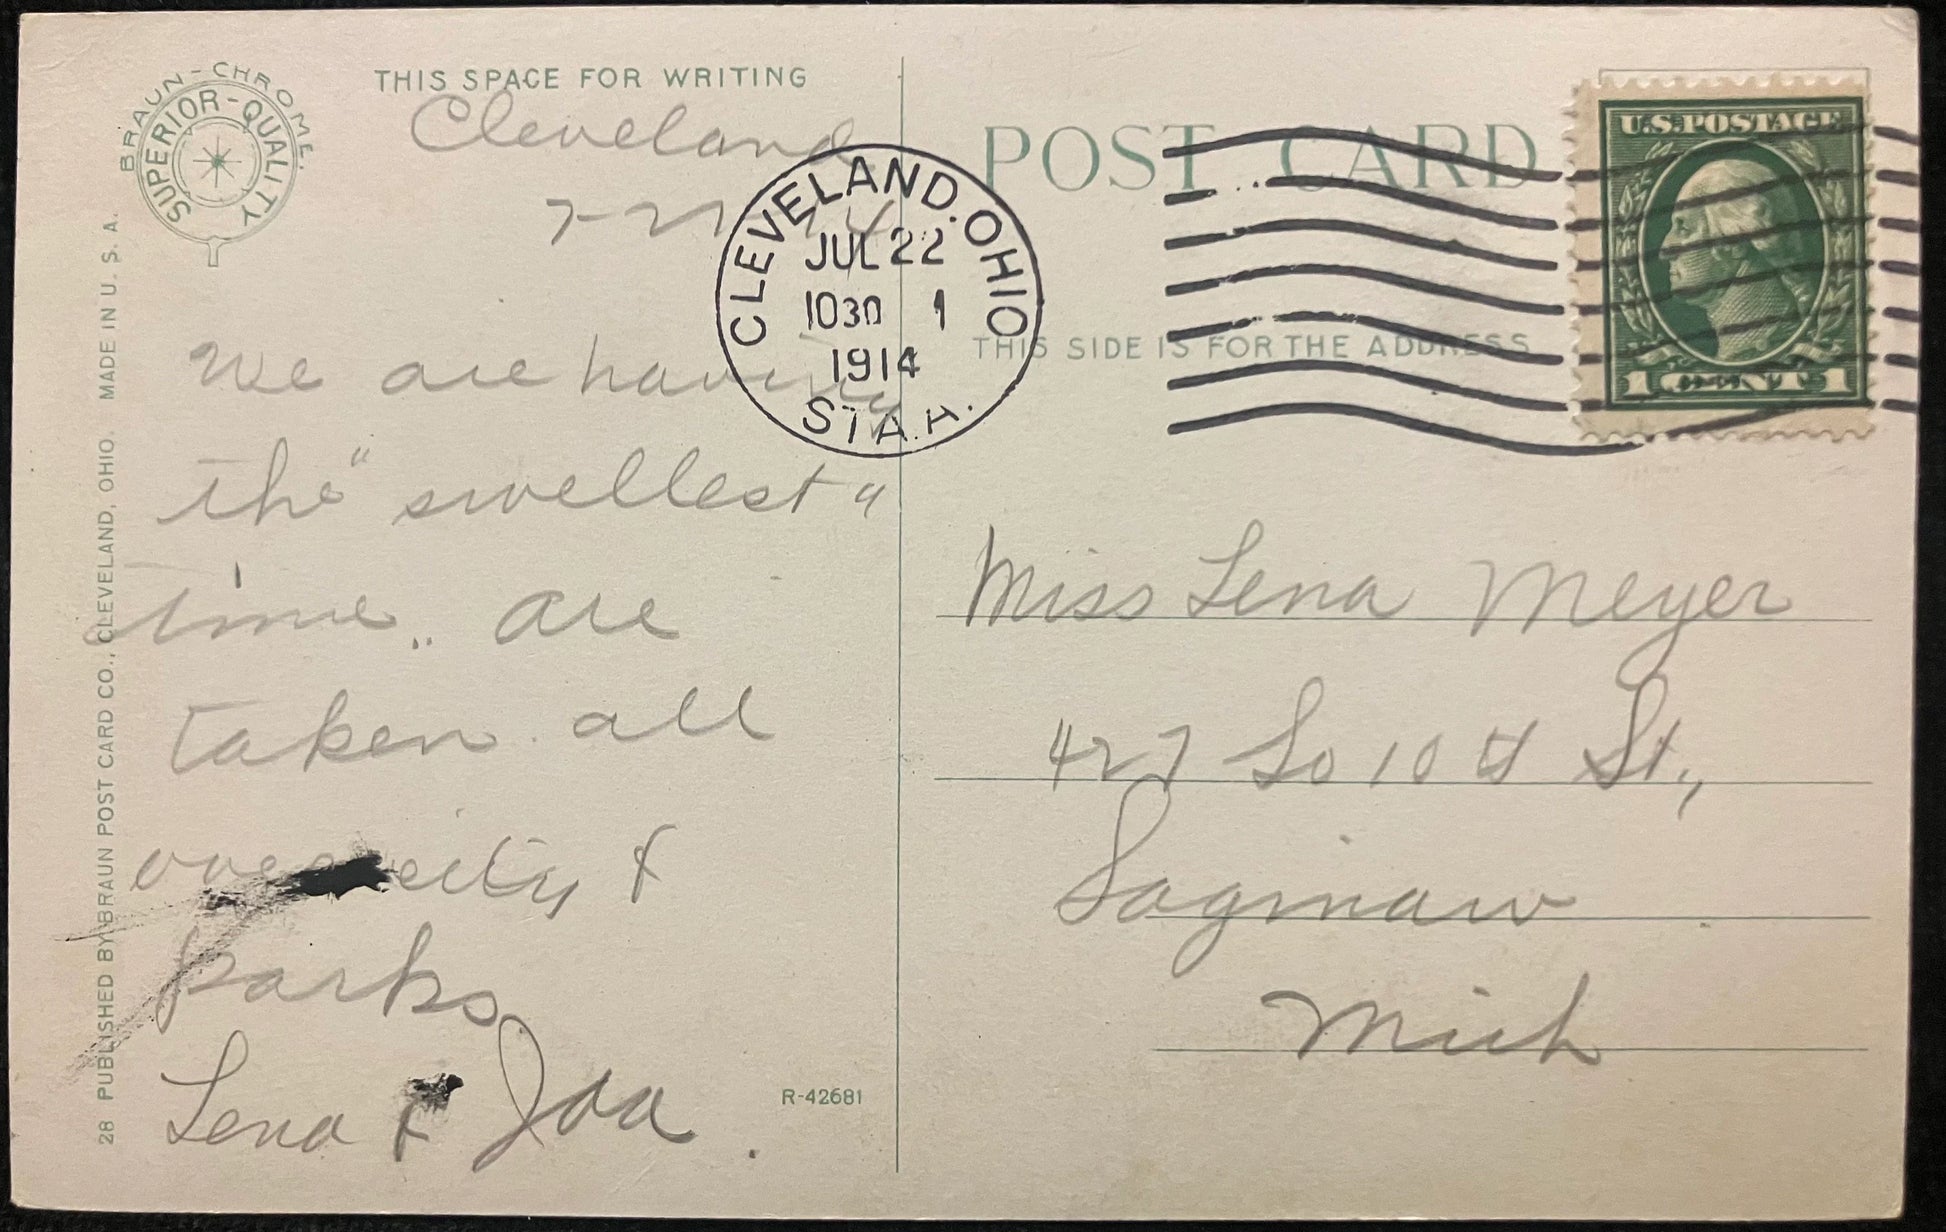 BRAUN-CHROME.
SUPERIOR-QUALITY
THIS SPACE FOR WRITING
Cleveland
We are having
the "swellest"
time.. are
taken all
over city &
parks
Lena & Ida.
28 PUBLISHED BY BRAUN POST CARD CO., CLEVELAND, OHIO. MADE IN U. S. A.
R-42681
CLEVELAND. OHIO
JUL 22
1030
1914
STA. H.
POST CARD
THIS SIDE IS FOR THE ADDRESS
U.S. POSTAGE
1 CENT 1
Miss Lena Meyer
427 So 10th St.,
Saginaw
Mich